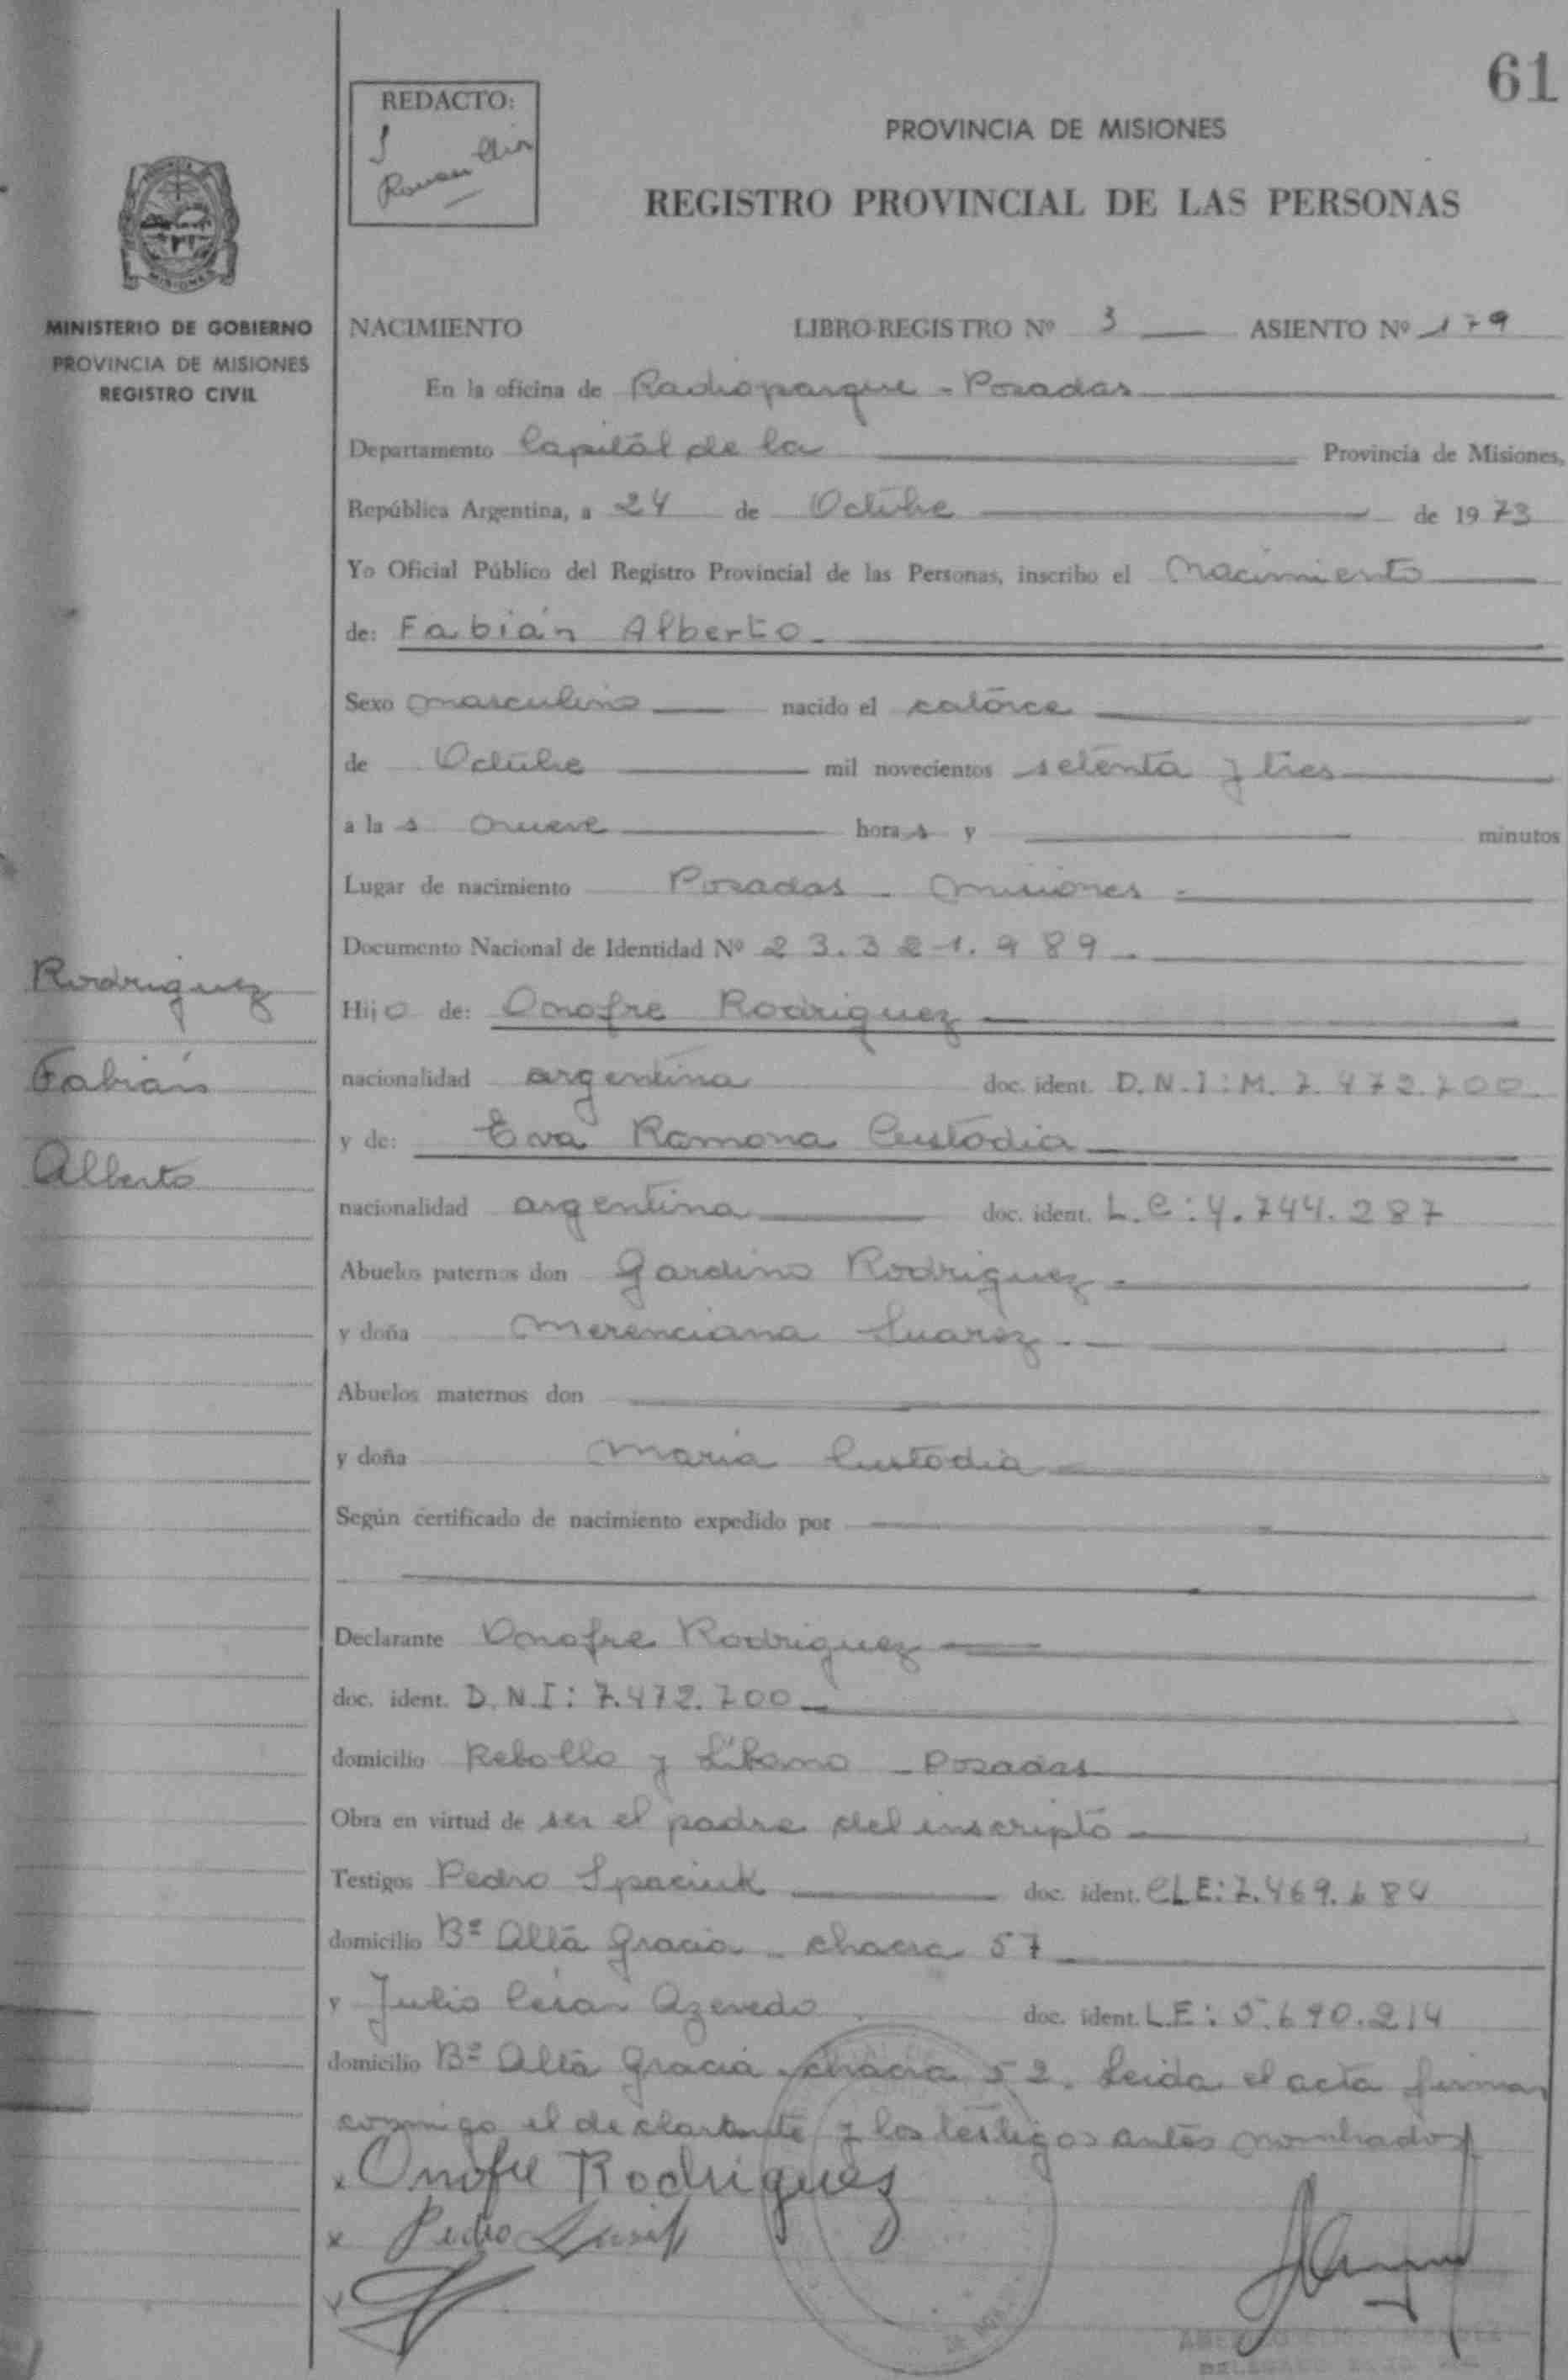 61
REDACTO:
PROVINCIA DE MISIONES
REGISTRO PROVINCIAL DE LAS PERSONAS
MISIONES
MINISTERIO DE GOBIERNO
PROVINCIA DE MISIONES
REGISTRO CIVIL
NACIMIENTO LIBRO-REGISTRO Nº 3 ASIENTO Nº 179
En la oficina de Radioparque - Posadas
Departamento Capital de la Provincia de Misiones,
República Argentina, a 24 de Octubre de 1973
Yo Oficial Público del Registro Provincial de las Personas, inscribo el Nacimiento
de: Fabián Alberto.
Sexo masculino nacido el catorce
de Octubre mil novecientos setenta y tres
a las nueve horas y minutos
Lugar de nacimiento Posadas - Misiones -
Documento Nacional de Identidad Nº 23.321.989.
Rodriguez
Hijo de: Onofre Rodriguez
Fabián
nacionalidad argentina doc. ident. D.N.I: M. 7.472.700.
y de: Eva Ramona Custodia
Alberto
nacionalidad argentina doc. ident. L.C: 4.744.287
Abuelos paternos don Gardino Rodriguez -
y doña Merenciana Suarez -
Abuelos maternos don
y doña Maria Custodia
Según certificado de nacimiento expedido por
Declarante Onofre Rodriguez
doc. ident. D.N.I: 7.472.700
domicilio Rebollo y Líbano - Posadas
Obra en virtud de ser el padre del inscripto
Testigos Pedro Spaciuk doc. ident. LE: 7.469.684
domicilio Bº Alta Gracia - chacra 57
y Julio César Azevedo doc. ident. L.E: 5.690.214
domicilio Bº Alta Gracia - chacra 52. Leida el acta firman
conmigo el declarante y los testigos antes nombrados
x Onofre Rodriguez
x Pedro